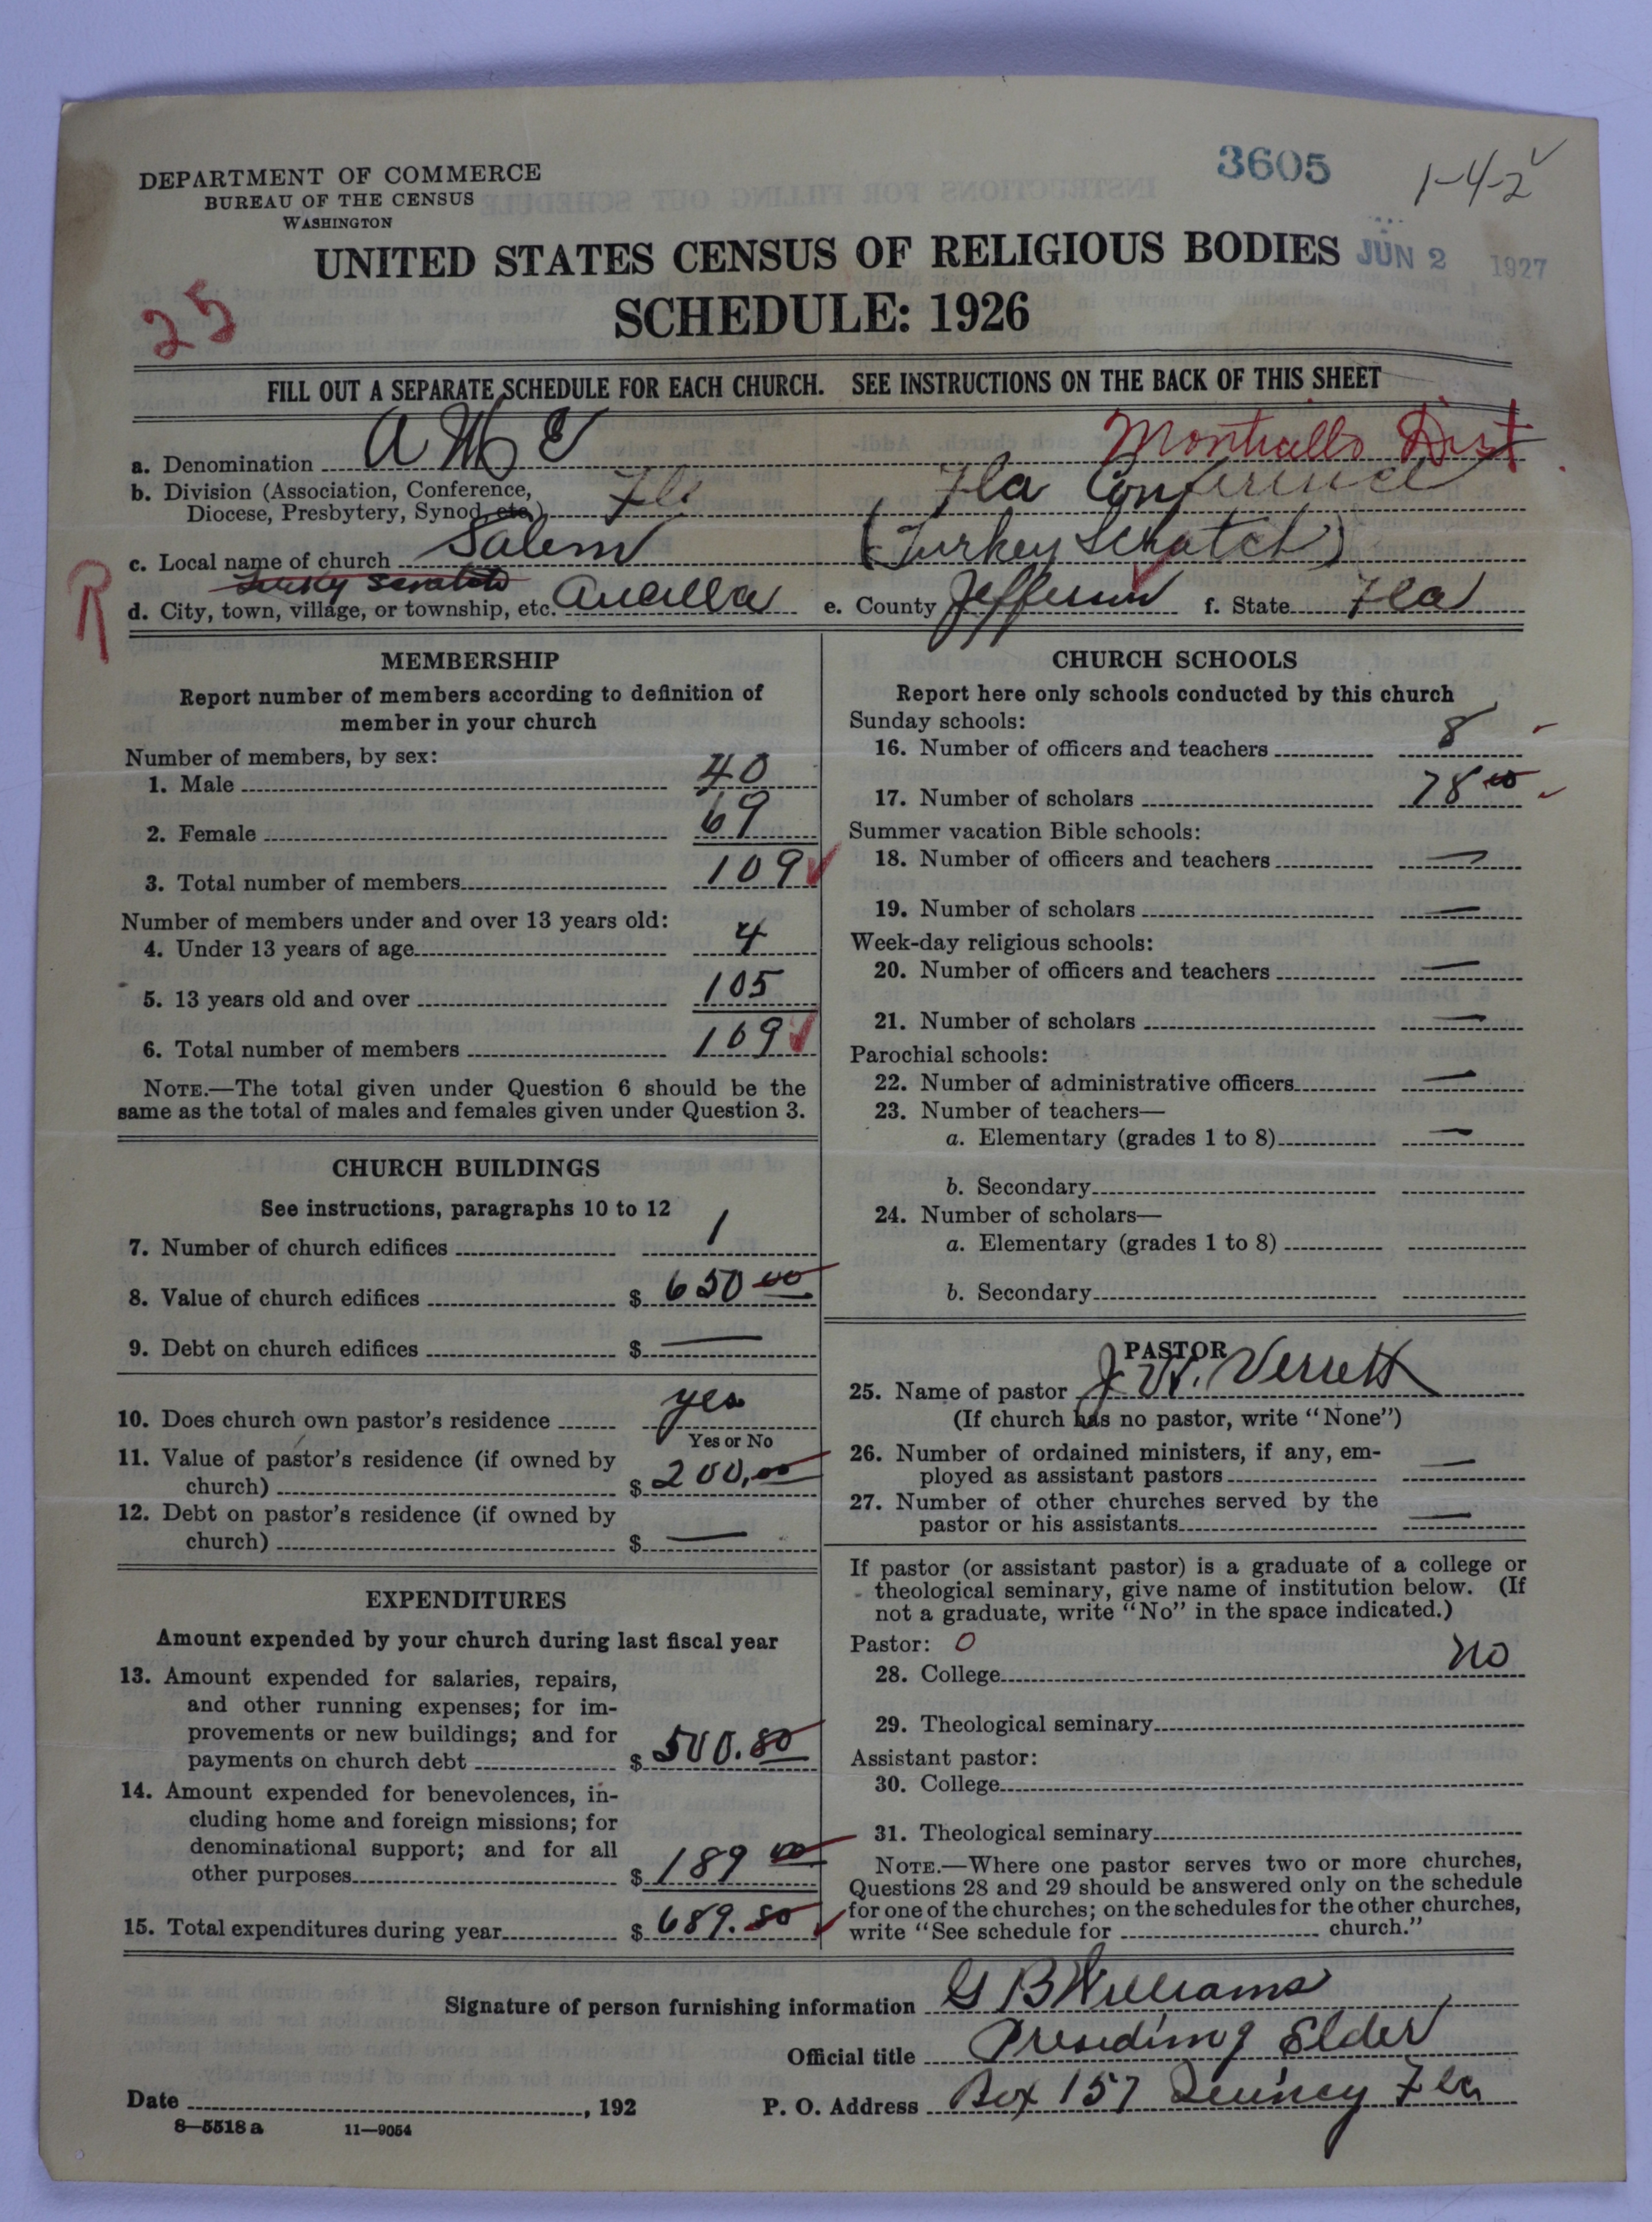 3605
1-4-2
DEPARTMENT OF COMMERCE
BUREAU OF THE CENSUS
WASHINGTON
UNITED STATES CENSUS OF RELIGIOUS BODIES
JUN 2 1927
SCHEDULE: 1926
25
FILL OUT A SEPARATE SCHEDULE FOR EACH CHURCH. SEE INSTRUCTIONS ON THE BACK OF THIS SHEET
Monticello Dist.
a. Denomination A M E
b. Division (Association, Conference, Diocese, Presbytery, Synod, etc.) Fla Fla Conference
c. Local name of church Salem (Turkey Schatch)
R
d. City, town, village, or township, etc. Aucilla e. County Jefferson f. State Fla
MEMBERSHIP
Report number of members according to definition of
member in your church
Number of members, by sex:
1. Male 40
2. Female 69
3. Total number of members 109
Number of members under and over 13 years old:
4. Under 13 years of age 4
5. 13 years old and over 105
6. Total number of members 109
NOTE.—The total given under Question 6 should be the
same as the total of males and females given under Question 3.
CHURCH BUILDINGS
See instructions, paragraphs 10 to 12
7. Number of church edifices 1
8. Value of church edifices $ 650 00
9. Debt on church edifices $ —
10. Does church own pastor's residence yes
Yes or No
11. Value of pastor's residence (if owned by
church) $ 200.00
12. Debt on pastor's residence (if owned by
church) $ —
EXPENDITURES
Amount expended by your church during last fiscal year
13. Amount expended for salaries, repairs,
and other running expenses; for im-
provements or new buildings; and for
payments on church debt $ 500.80
14. Amount expended for benevolences, in-
cluding home and foreign missions; for
denominational support; and for all
other purposes $ 189 00
15. Total expenditures during year $ 689.80
CHURCH SCHOOLS
Report here only schools conducted by this church
Sunday schools:
16. Number of officers and teachers 8
17. Number of scholars 78 00
Summer vacation Bible schools:
18. Number of officers and teachers —
19. Number of scholars —
Week-day religious schools:
20. Number of officers and teachers —
21. Number of scholars —
Parochial schools:
22. Number of administrative officers —
23. Number of teachers—
a. Elementary (grades 1 to 8) —
b. Secondary
24. Number of scholars—
a. Elementary (grades 1 to 8)
b. Secondary
PASTOR
25. Name of pastor J. W. Verrett
(If church has no pastor, write "None")
26. Number of ordained ministers, if any, em-
ployed as assistant pastors —
27. Number of other churches served by the
pastor or his assistants —
If pastor (or assistant pastor) is a graduate of a college or
theological seminary, give name of institution below. (If
not a graduate, write "No" in the space indicated.)
Pastor: 0
28. College no
29. Theological seminary
Assistant pastor:
30. College
31. Theological seminary
NOTE.—Where one pastor serves two or more churches,
Questions 28 and 29 should be answered only on the schedule
for one of the churches; on the schedules for the other churches,
write "See schedule for church."
Signature of person furnishing information G B Williams
Official title Presiding Elder
Date , 192 P. O. Address Box 157 Quincy Fla
8—5518 a 11—9054